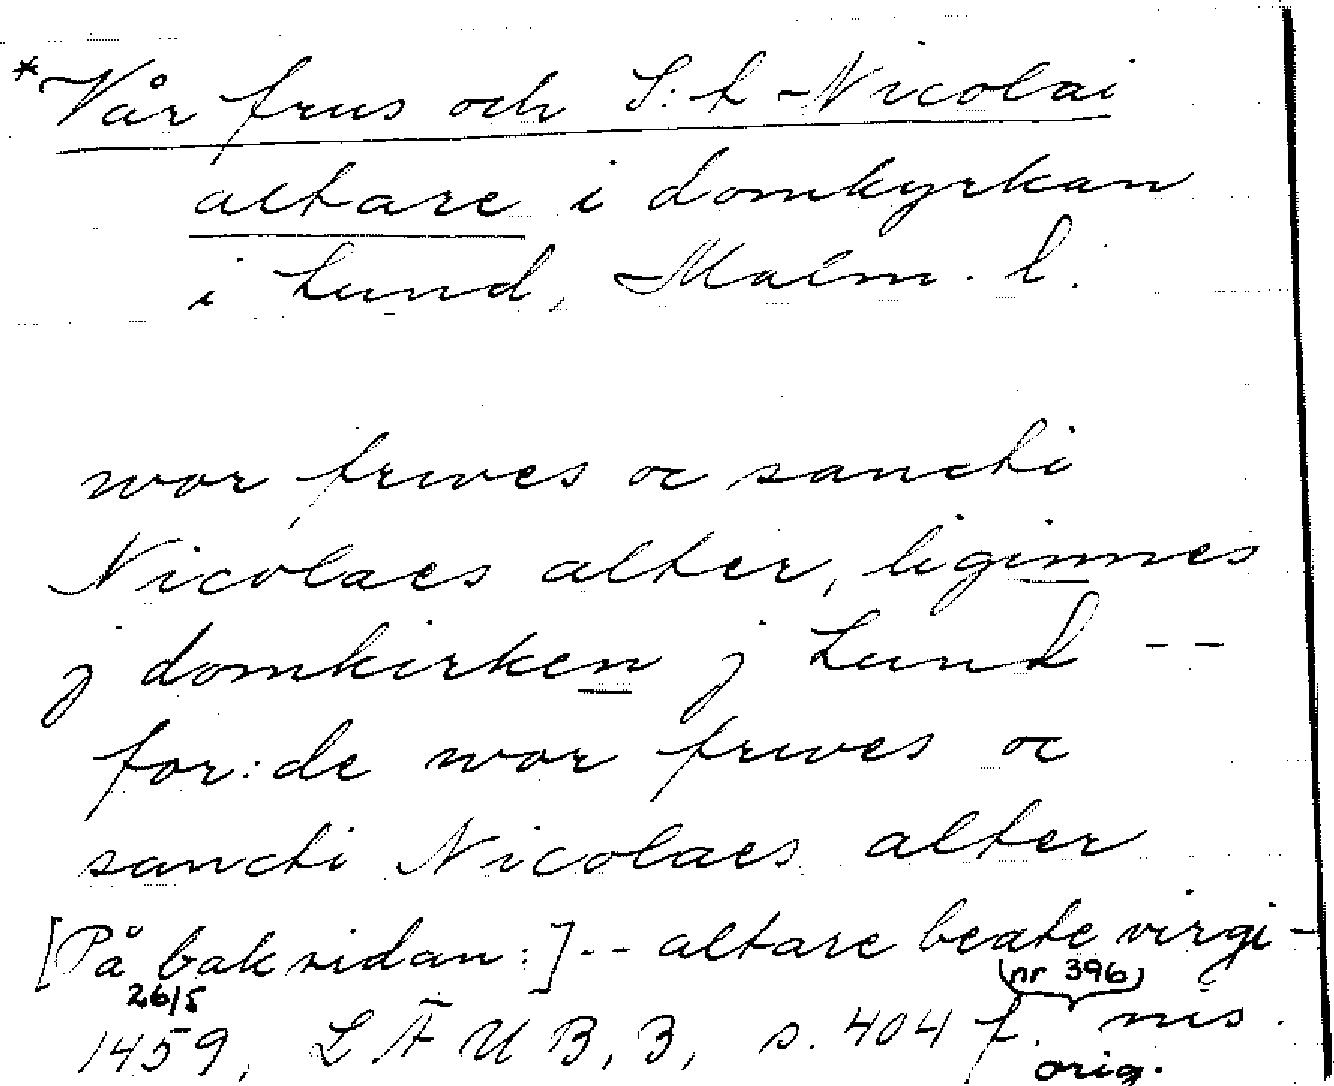 *Vår frus och S:t Nicolai
altare i domkyrkan
i Lund, Malm. l.
wor frwes oc sancti
Nicolaes alter, liginnes
j domkirken j Lund --
for:de wor frwes oc
sancti Nicolaes alter
[På baksidan:] -- altare beate virgi-
nis.
26/5 (nr 396)
1459, LÄUB, 3, s. 404 f.
orig.